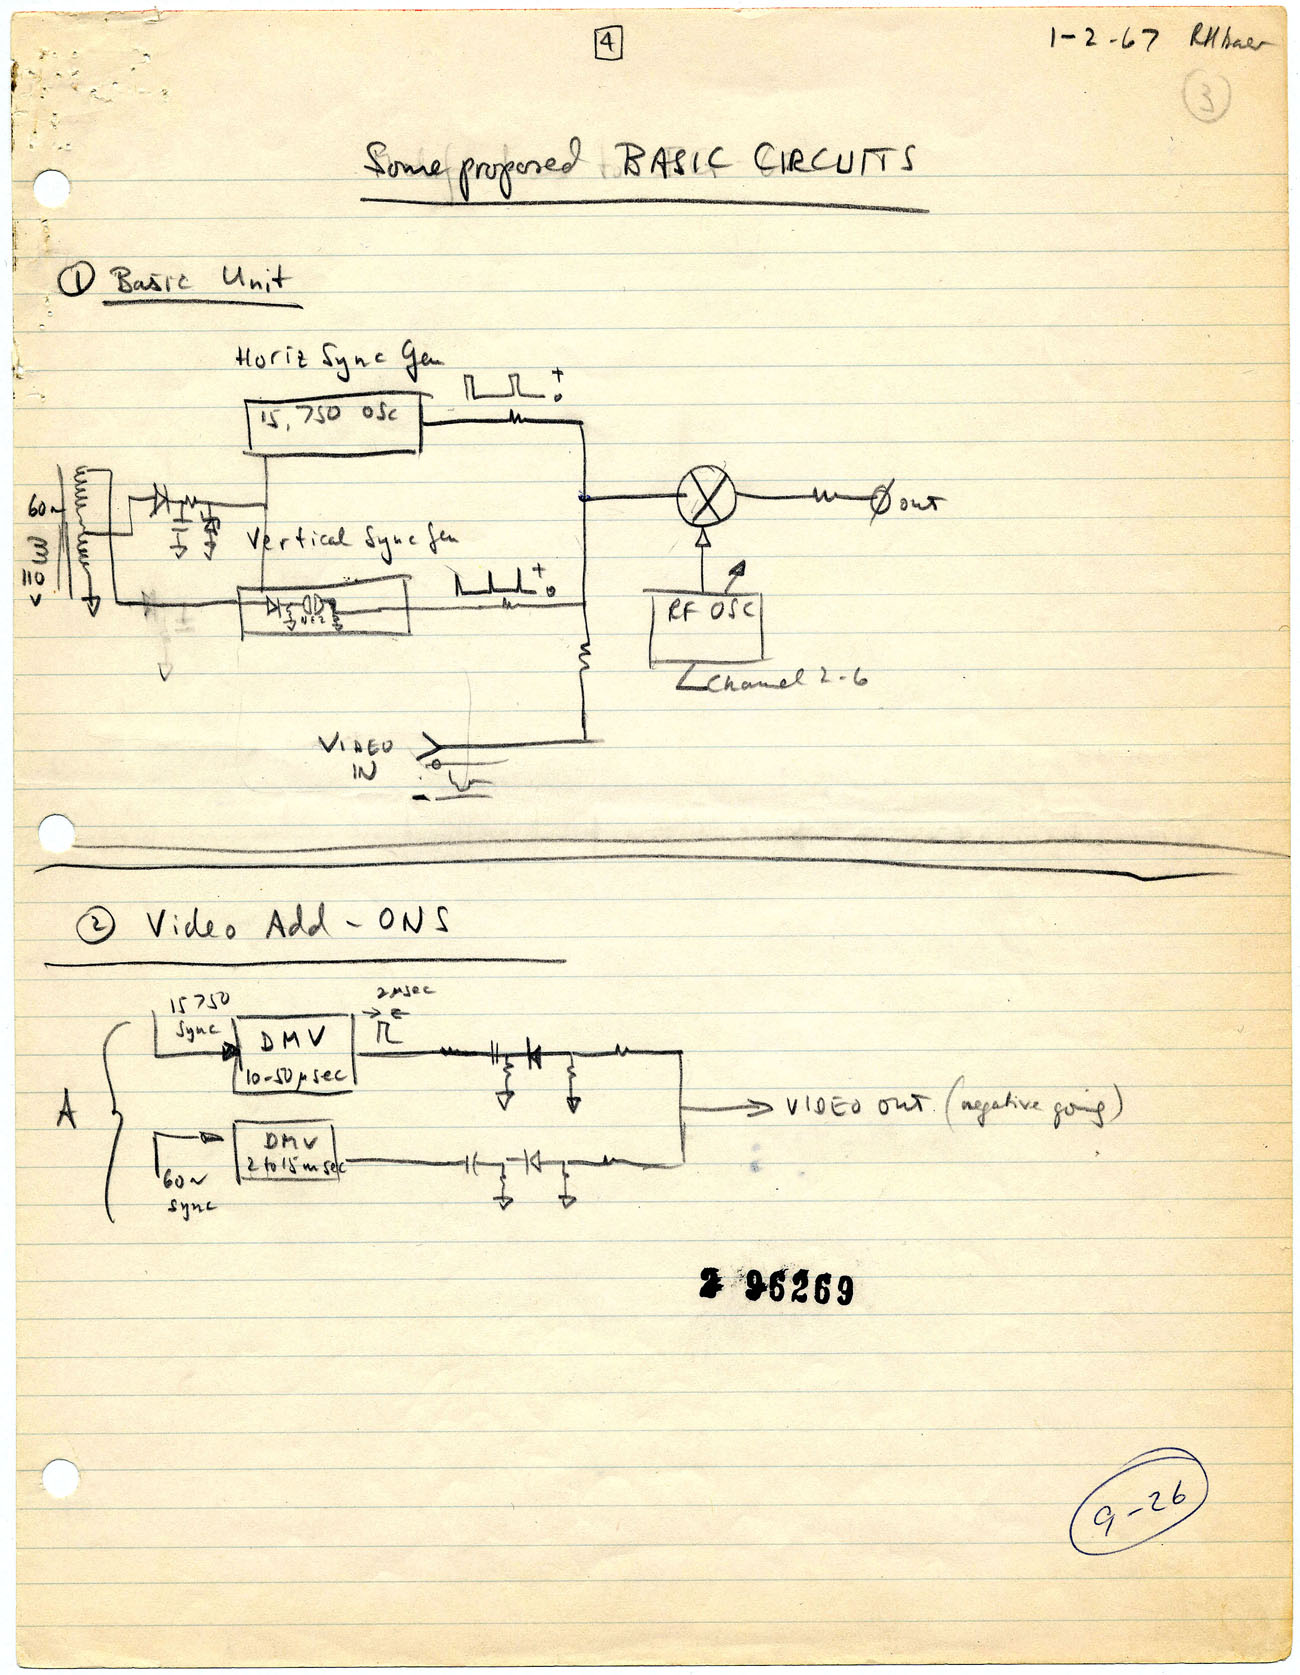 4
1-2-67 RHBaer
3
Some proposed BASIC CIRCUITS
1 Basic Unit
Horiz Sync Gen
15,750 OSC
+
0
60~
110
V
Vertical Sync Gen
+
0
out
RF OSC
Channel 2-6
VIDEO
IN
0
-
2 Video Add-ONS
2 μsec
15750
sync
DMV
10-50 μsec
A
VIDEO OUT (negative going)
DMV
2 to 15 msec
60~
sync
96269
9-26